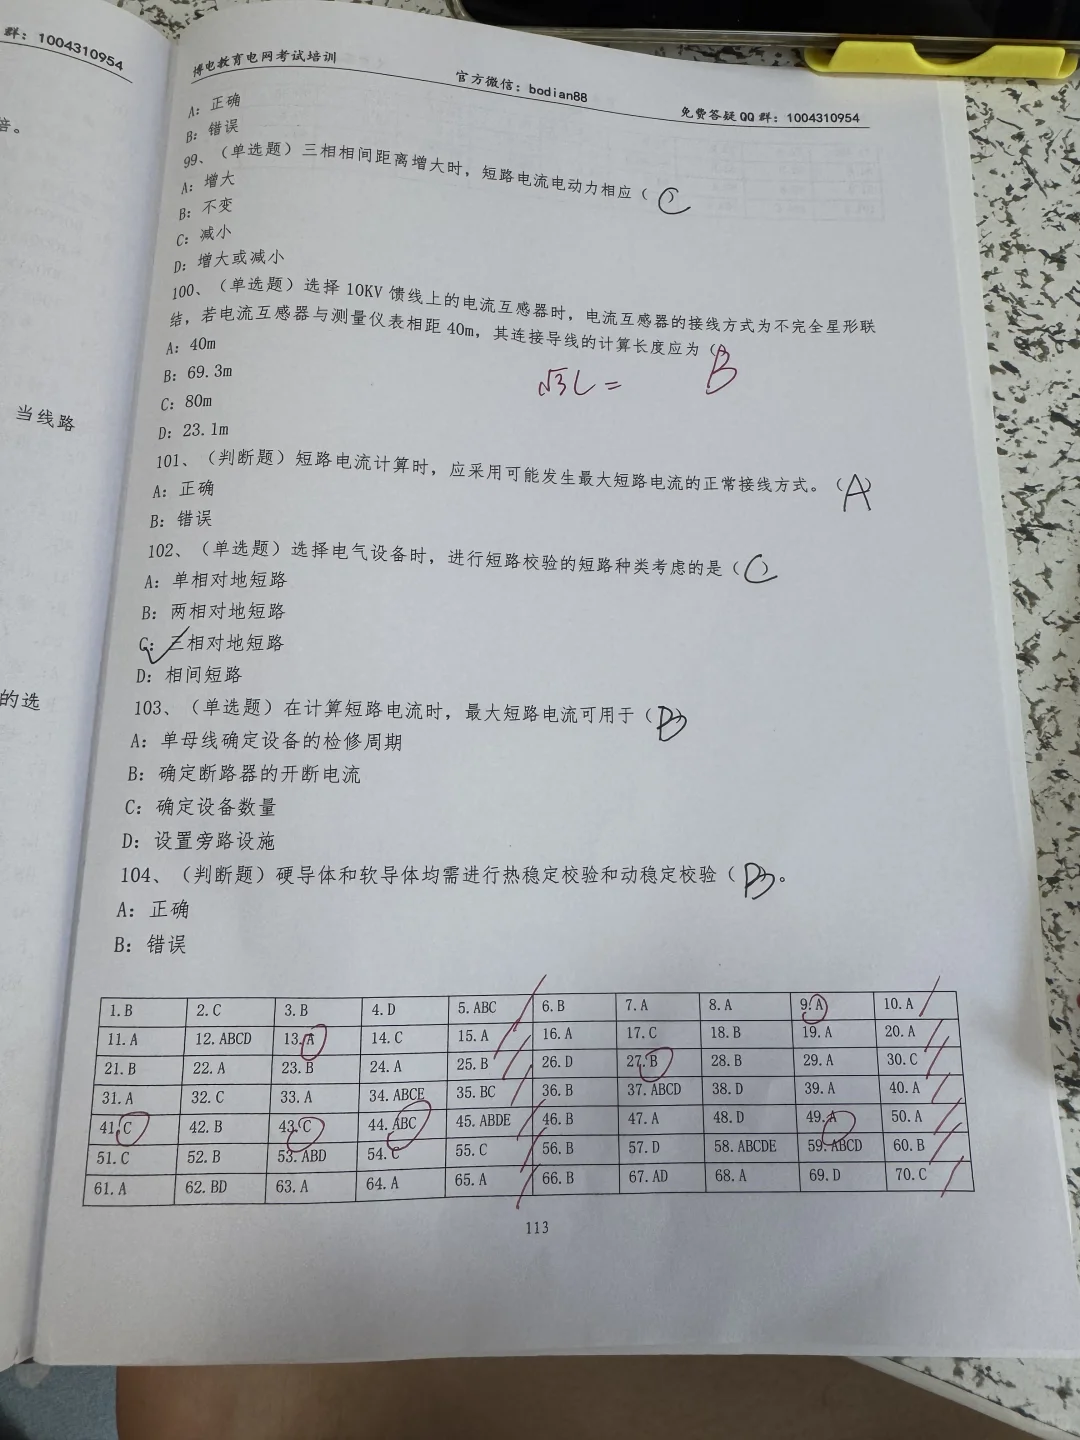 群：1004310954
倍。
当线路
的选
博电教育电网考试培训 官方微信：bodian88 免费答疑 QQ 群：1004310954
A：正确
B：错误
99、（单选题）三相相间距离增大时，短路电流电动力相应（C）
A：增大
B：不变
C：减小
D：增大或减小
100、（单选题）选择 10KV 馈线上的电流互感器时，电流互感器的接线方式为不完全星形联
结，若电流互感器与测量仪表相距 40m，其连接导线的计算长度应为（B
A：40m
√3L =
B：69.3m
C：80m
D：23.1m
101、（判断题）短路电流计算时，应采用可能发生最大短路电流的正常接线方式。（A）
A：正确
B：错误
102、（单选题）选择电气设备时，进行短路校验的短路种类考虑的是（C）
A：单相对地短路
B：两相对地短路
C：三相对地短路
D：相间短路
103、（单选题）在计算短路电流时，最大短路电流可用于（B）
A：单母线确定设备的检修周期
B：确定断路器的开断电流
C：确定设备数量
D：设置旁路设施
104、（判断题）硬导体和软导体均需进行热稳定校验和动稳定校验（B。
A：正确
B：错误
1.B 2.C 3.B 4.D 5.ABC 6.B 7.A 8.A 9.A 10.A
11.A 12.ABCD 13.A 14.C 15.A 16.A 17.C 18.B 19.A 20.A
21.B 22.A 23.B 24.A 25.B 26.D 27.B 28.B 29.A 30.C
31.A 32.C 33.A 34.ABCE 35.BC 36.B 37.ABCD 38.D 39.A 40.A
41.C 42.B 43.C 44.ABC 45.ABDE 46.B 47.A 48.D 49.A 50.A
51.C 52.B 53.ABD 54.C 55.C 56.B 57.D 58.ABCDE 59.ABCD 60.B
61.A 62.BD 63.A 64.A 65.A 66.B 67.AD 68.A 69.D 70.C
113